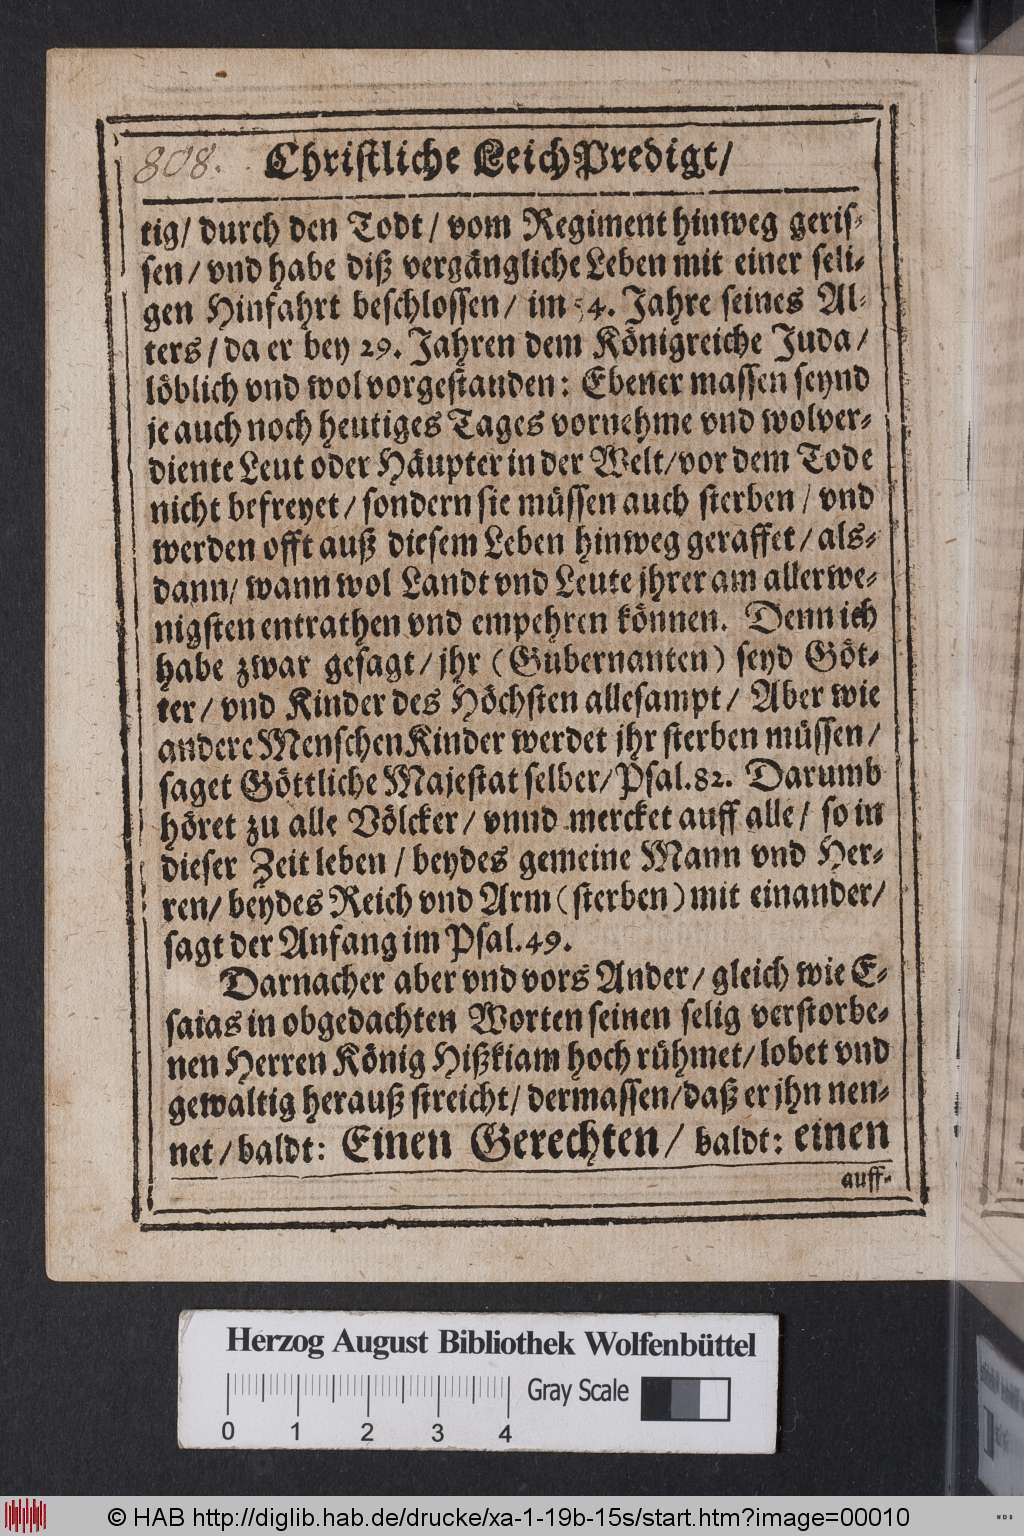 808.
Christliche LeichPredigt/
tig/ durch den Todt/ vom Regiment hinweg geris-
sen/ vnd habe diß vergängliche Leben mit einer seli-
gen Hinfahrt beschlossen/ im 54. Jahre seines Al-
ters/ da er bey 29. Jahren dem Königreiche Juda/
löblich vnd wol vorgestanden: Ebener massen seynd
je auch noch heutiges Tages vornehme vnd wolver-
diente Leut oder Häupter in der Welt/ vor dem Tode
nicht befreyet/ sondern sie müssen auch sterben/ vnd
werden offt auß diesem Leben hinweg geraffet/ als-
dann/ wann wol Landt vnd Leute jhrer am allerwe-
nigsten entrathen vnd empehren können. Denn ich
habe zwar gesagt/ jhr (Gubernanten) seyd Göt-
ter/ vnd Kinder des Höchsten allesampt/ Aber wie
andere MenschenKinder werdet jhr sterben müssen/
saget Göttliche Majestat selber/ Psal. 82. Darumb
höret zu alle Völcker/ vnnd mercket auff alle/ so in
dieser Zeit leben/ beydes gemeine Mann vnd Her-
ren/ beydes Reich vnd Arm (sterben) mit einander/
sagt der Anfang im Psal. 49.
Darnacher aber vnd vors Ander/ gleich wie E-
saias in obgedachten Worten seinen selig verstorbe-
nen Herren König Hißkiam hoch rühmet/ lobet vnd
gewaltig herauß streicht/ dermassen/ daß er jhn nen-
net/ baldt: Einen Gerechten/ baldt: einen
auff-
Herzog August Bibliothek Wolfenbüttel
Gray Scale
0 1 2 3 4
© HAB http://diglib.hab.de/drucke/xa-1-19b-15s/start.htm?image=00010